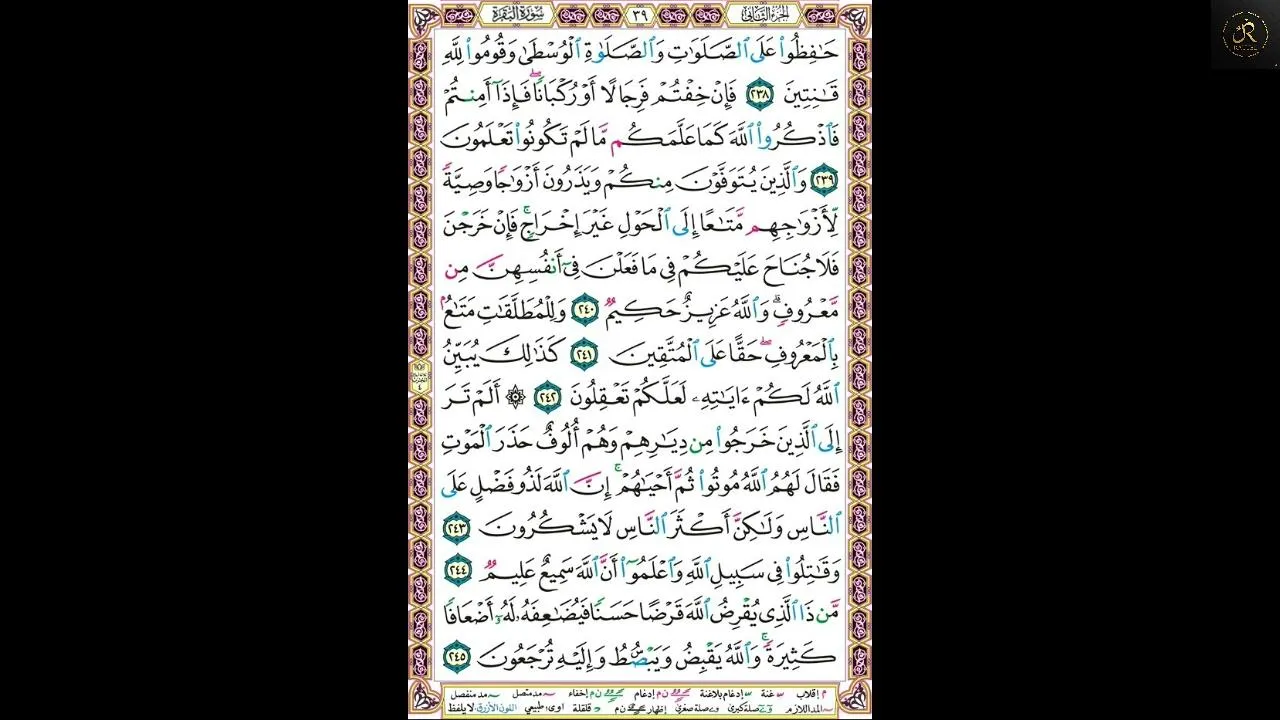 الجزء الثاني ٣٩ سورة البقرة
حَـٰفِظُوا۟ عَلَى ٱلصَّلَوَٰتِ وَٱلصَّلَوٰةِ ٱلْوُسْطَىٰ وَقُومُوا۟ لِلَّهِ
قَـٰنِتِينَ ٢٣٨ فَإِنْ خِفْتُمْ فَرِجَالًا أَوْ رُكْبَانًاۖ فَإِذَآ أَمِنتُمْ
فَٱذْكُرُوا۟ ٱللَّهَ كَمَا عَلَّمَكُم مَّا لَمْ تَكُونُوا۟ تَعْلَمُونَ
٢٣٩ وَٱلَّذِينَ يُتَوَفَّوْنَ مِنكُمْ وَيَذَرُونَ أَزْوَٰجًا وَصِيَّةً
لِّأَزْوَٰجِهِم مَّتَـٰعًا إِلَى ٱلْحَوْلِ غَيْرَ إِخْرَاجٍۚ فَإِنْ خَرَجْنَ
فَلَا جُنَاحَ عَلَيْكُمْ فِى مَا فَعَلْنَ فِىٓ أَنفُسِهِنَّ مِن
مَّعْرُوفٍۗ وَٱللَّهُ عَزِيزٌ حَكِيمٌ ٢٤٠ وَلِلْمُطَلَّقَـٰتِ مَتَـٰعٌۢ
بِٱلْمَعْرُوفِۖ حَقًّا عَلَى ٱلْمُتَّقِينَ ٢٤١ كَذَٰلِكَ يُبَيِّنُ
ٱللَّهُ لَكُمْ ءَايَـٰتِهِۦ لَعَلَّكُمْ تَعْقِلُونَ ٢٤٢ ۞ أَلَمْ تَرَ
إِلَى ٱلَّذِينَ خَرَجُوا۟ مِن دِيَـٰرِهِمْ وَهُمْ أُلُوفٌ حَذَرَ ٱلْمَوْتِ
فَقَالَ لَهُمُ ٱللَّهُ مُوتُوا۟ ثُمَّ أَحْيَـٰهُمْۚ إِنَّ ٱللَّهَ لَذُو فَضْلٍ عَلَى
ٱلنَّاسِ وَلَـٰكِنَّ أَكْثَرَ ٱلنَّاسِ لَا يَشْكُرُونَ ٢٤٣
وَقَـٰتِلُوا۟ فِى سَبِيلِ ٱللَّهِ وَٱعْلَمُوٓا۟ أَنَّ ٱللَّهَ سَمِيعٌ عَلِيمٌ ٢٤٤
مَّن ذَا ٱلَّذِى يُقْرِضُ ٱللَّهَ قَرْضًا حَسَنًا فَيُضَـٰعِفَهُۥ لَهُۥٓ أَضْعَافًا
كَثِيرَةًۚ وَٱللَّهُ يَقْبِضُ وَيَبْصُۜطُ وَإِلَيْهِ تُرْجَعُونَ ٢٤٥
م إقلاب غنة إدغام بلاغنة ن م إدغام ن م إخفاء مد متصل مد منفصل
المد اللازم صلة كبرى صلة صغرى إظهار ن م قلقلة اوى طبيعي اللون الأزرق لا يلفظ